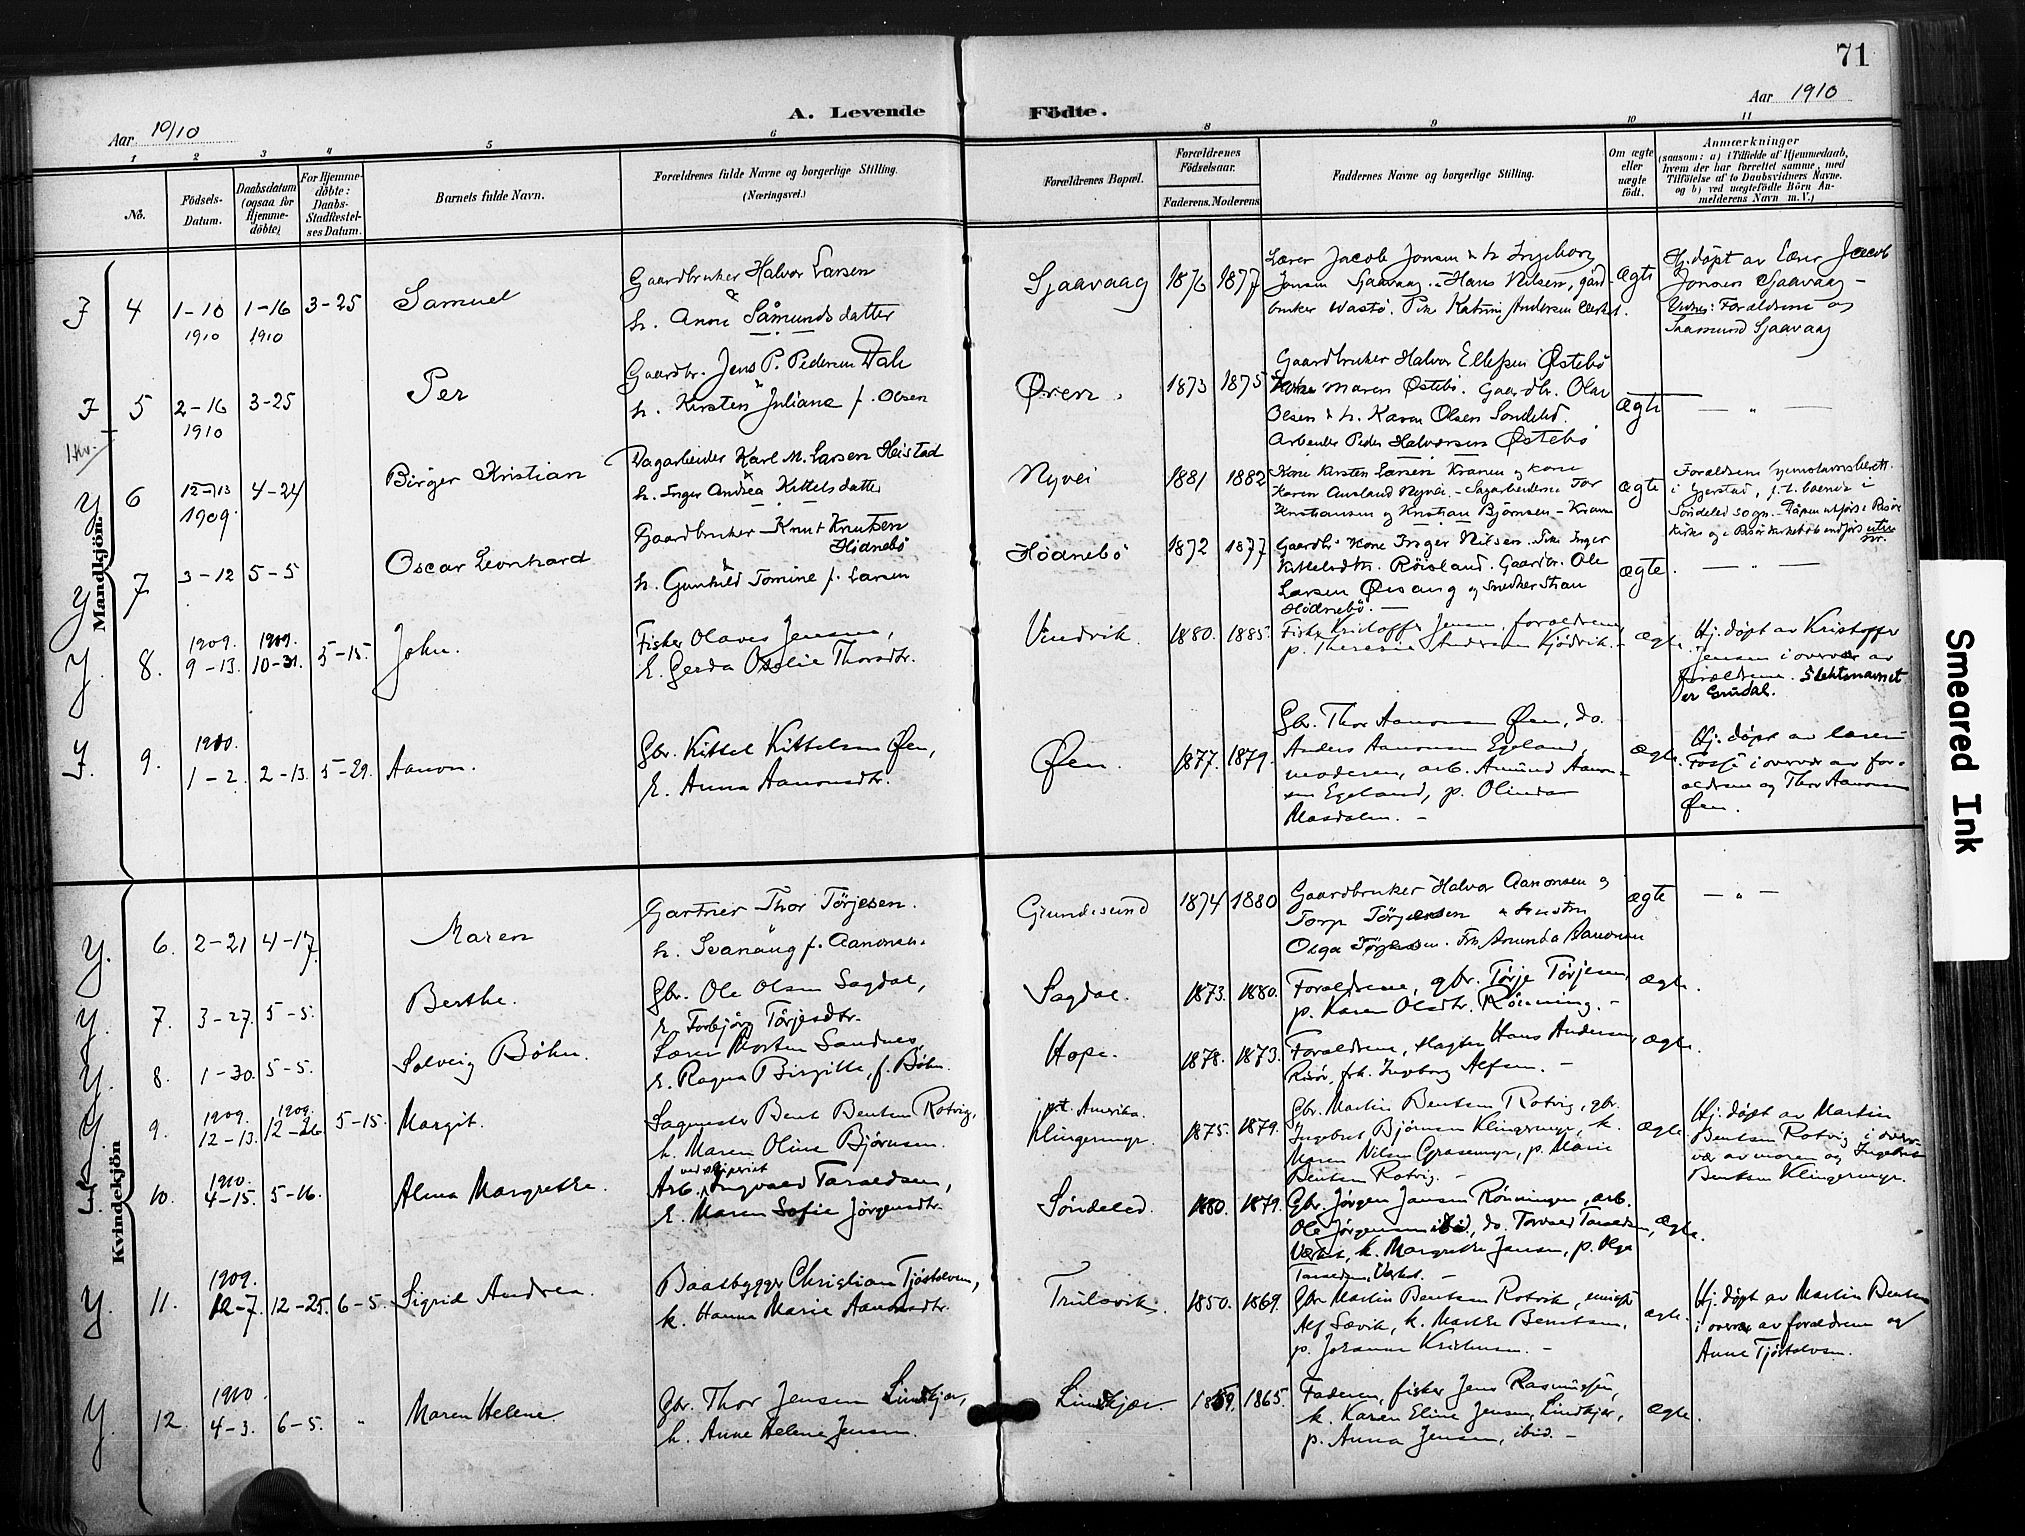 71
Aar 1910
A. Levende Födte.
Aar 1910
1 2 3 4 5 6 8 9 10 11
No.
Födsels-Datum.
Daabsdatum (ogsaa for Hjemme-döbte)
For Hjemme-döbte: Daabs-Stadfæstel-ses Datum.
Barnets fulde Navn.
Forældrenes fulde Navne og borgerlige Stilling. (Næringsvei.)
Forældrenes Bopæl.
Forældrenes Födselsaar.
Faderens. Moderens
Faddernes Navne og borgerlige Stilling.
Om ægte eller uægte födt.
Anmærkninger
(saasom: a) i Tilfælde af Hjemmedaab,
hvem der har forrettet samme, med
Tilföielse af to Daabsvidners Navne.
og b) ved uægtefödte Börn An-
melderens Navn m. V.)
Mandkjön.
4 1-10 1910 1-16 1910 3-25 Samuel
Gaardbruker Halvor Larsen
h. Anne Såmundsdatter
Sjaavaag 1876 1877
Lærer Jacob Jonsen & h. Ingeborg
Jonsen Sjaavaag. Hans Nilsen, gård-
bruker Wastö. Pike Katrine Andersen
ægte
Hj. döpt av Lærer Jacob
Jonsen Sjaavaag -
Vidner: Forældrene og
Saamund Sjaavaag
5 2-16 1910 3-25 Per
Gaardbr. Jens P. Pedersen Dale
h. Kirsten Juliane f. Olsen
Øren. 1873 1875
Gaardbruker Halvor Ellefsen Østebö
Kone Maren Østebö. Gaardbr. Olav
Olsen & h. Karen Olsen Söndeled.
Arbeider Peder Halvorsen Østebö
ægte - " -
6 12-13 1909. 4-24 Birger Kristian
Dagarbeider Karl M. Larsen Heistad
h. Inger Andrea Kittelsdatter
Nyvei 1881 1882
Kone Kirsten Larsen Kranen og kone
Karen Ausland Nyvei. - Sagarbeiderne Tor
Kristiansen og Kristian Björnsen - Kranen
ægte
Forældrene hjemstavnsberett.
i Gjerstad, p.t. boende i
Söndeled sogn. Dåpen utförs i Risör
Kirke og i Risör kirkebok indförs uten nr.
7 3-12 5-5 Oscar Leonhard
Gaardbruker Knut Knutsen
Hödnebö
h. Gunhild Tomine f. Larsen
Hödnebö 1872 1877
Gaardbr. Kone Inger Nilsen. Pike Inger
Kittelsdtr. Röisland. Gaardbr. Ole
Larsen Øisang og Snedker Stian
Hödnebö. -
ægte. - " -
8. 1909. 9-13. 1909. 10-31. 5-15. John.
Fisker Olaves Jensen,
k. Gerda Otelie Thorsdtr.
Vindvik. 1880. 1885.
Fisker Kristoffer Jensen, forældrene,
p. Theresie Andersen Kjödvik. -
ægte
Hj. döpt av Kristoffer
Jensen i overvær av
forældrene. Slektsnavnet
er Grudal.
9. 1910. 1-2. 2-13. 5-29. Aanon.
Gbr. Kittel Kittelsen Øen,
k. Anna Aanonsdtr.
Øen. 1877. 1879.
Gbr. Thor Aanonsen Øen, do.
Anders Aanonsen Egeland,
moderen, arb. Amund Aanon-
sen Egeland, p. Olinda
Masdalen. -
ægte.
Hj. döpt av lærer
Fosse i overvær av for-
ældrene og Thor Aanonsen
Øen.
Kvindekjön
6. 2-21 4-17. Maren
Gartner Thor Törjesen.
h. Svanaug f. Aanonsen.
Grundesund 1874 1880
Gaardbruker Halvor Aanonsen og
Torp Törjesen
Olga Törjesen. Frk Amunda Aanonsen
ægte - " -
7. 3-27. 5-5. Berthe.
Gbr. Ole Olsen Sagdal,
k. Torbjörg Törjesdtr.
Sagdal. 1873. 1880.
Forældrene, gbr. Törje Törjesen,
p. Karen Olsdtr. Rönning. -
ægte.
8. 1-30. 5-5. Solveig Böhn.
Lærer Morten Sandnes,
k. Ragna Birgitte, f. Böhn.
Hope. 1878. 1873.
Forældrene, slagter Hans Andersen,
Risör, frk. Ingeborg Alfsen. -
ægte.
9. 1909. 12-13. 1909. 12-26. 5-15. Margit.
Sagmester Bent Bentsen Rotvig,
k. Maren Oline Björnsen.
p.t. Amerika.
Klingermyr. 1875. 1879.
Gbr. Martin Bentsen Rotvig, gbr.
Ingebret Björnsen Klingermyr, k.
Maren Nilsen Grasemyr, p. Marie
Bentsen Rotvig. -
ægte
Hj. döpt av Martin
Bentsen Rotvig i over-
vær av moren og Ingebret
Bentsen Klingermyr.
10. 1910. 4-15. 5-16. Alma Margrethe.
Arb. ved sliperiet Ingvald Taraldsen,
k. Maren Sofie Jörgensdtr.
Söndeled. 1880. 1879.
Gbr. Jörgen Jansen Rönningen, arb.
Ole Jörgensen ibid., do. Torvald Taraldsen,
Værket, k. Margrethe Jansen, p. Olga
Taraldsen, Værket. -
ægte.
11. 1909. 12-7. 12-25. 6-5. Sigrid Andrea.
Baatbygger Christian Tjöstolvsen,
k. Hanna Marie Aanonsdtr.
Trulsvik. 1850. 1869.
Gbr. Martin Bentsen Rotvik, ungk.
Alf Sævik, k. Marthe Bentsen,
p. Johanne Kristensen. -
ægte.
Hj. döpt av Martin Bentsen
i overvær av forældrene og
Anne Tjöstolvsen.
12. 1910 4-3. 6-5. " Maren Helene.
Gbr. Thor Jensen Lindkjær,
k. Anne Helene Jensen.
Lindkjær 1859. 1865.
Faderen, fisker Jens Rasmussen,
k. Karen Eline Jensen, Lindkjær,
p. Anna Jensen, ibid. -
ægte.
Smeared Ink